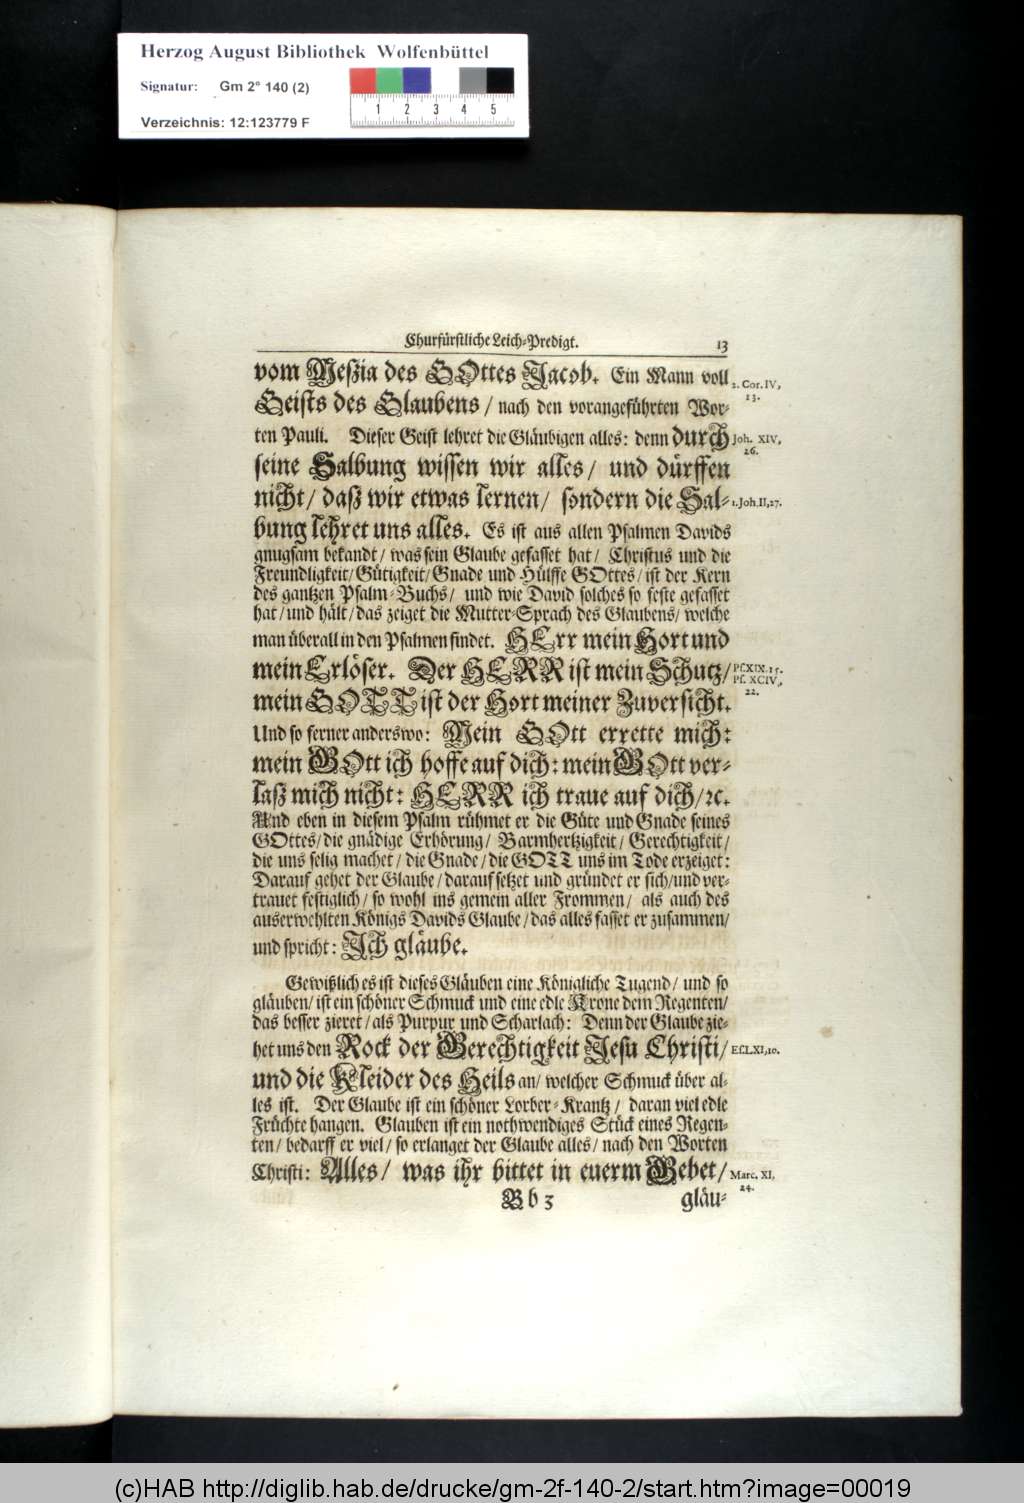 Herzog August Bibliothek Wolfenbüttel
Signatur: Gm 2° 140 (2)
1 2 3 4 5
Verzeichnis: 12:123779 F
Churfürstliche Leich-Predigt. 13
vom Meßia des GOttes Jacob. Ein Mann voll
2. Cor. IV, 13.
Geists des Glaubens / nach den vorangeführten Wor-
ten Pauli. Dieser Geist lehret die Gläubigen alles: denn durch
Joh. XIV, 26.
seine Salbung wissen wir alles / und dürffen
nicht / daß wir etwas lernen / sondern die Sal-
1. Joh. II, 27.
bung lehret uns alles. Es ist aus allen Psalmen Davids
gnugsam bekandt / was sein Glaube gefasset hat / Christus und die
Freundligkeit / Gütigkeit / Gnade und Hülffe GOttes / ist der Kern
des gantzen Psalm-Buchs / und wie David solches so feste gefasset
hat / und hält / das zeiget die Mutter-Sprach des Glaubens / welche
man überall in den Psalmen findet. HErr mein Hort und
mein Erlöser. Der HERR ist mein Schutz /
Ps. XIX. 15.
Ps. XCIV, 22.
mein GOTT ist der Hort meiner Zuversicht.
Und so ferner anderswo: Mein GOtt errette mich:
mein GOtt ich hoffe auf dich: mein GOtt ver-
laß mich nicht: HERR ich traue auf dich / ꝛc.
Und eben in diesem Psalm rühmet er die Güte und Gnade seines
GOttes / die gnädige Erhörung / Barmhertzigkeit / Gerechtigkeit /
die uns selig machet / die Gnade / die GOTT uns im Tode erzeiget:
Darauf gehet der Glaube / darauf setzet und gründet er sich / und ver-
trauet festiglich / so wohl ins gemein aller Frommen / als auch des
auserwehlten Königs Davids Glaube / das alles fasset er zusammen /
und spricht: Ich gläube.
Gewißlich es ist dieses Gläuben eine Königliche Tugend / und so
gläuben / ist ein schöner Schmuck und eine edle Krone dem Regenten /
das besser zieret / als Purpur und Scharlach: Denn der Glaube zie-
het uns den Rock der Gerechtigkeit Jesu Christi /
Es. LXI, 10.
und die Kleider des Heils an / welcher Schmuck über al-
les ist. Der Glaube ist ein schöner Lorber-Krantz / daran viel edle
Früchte hangen. Glauben ist ein nothwendiges Stück eines Regen-
ten / bedarff er viel / so erlanget der Glaube alles / nach den Worten
Christi: Alles / was ihr bittet in euerm Gebet /
Marc. XI, 24.
Bb 3 gläu-
(c)HAB http://diglib.hab.de/drucke/gm-2f-140-2/start.htm?image=00019